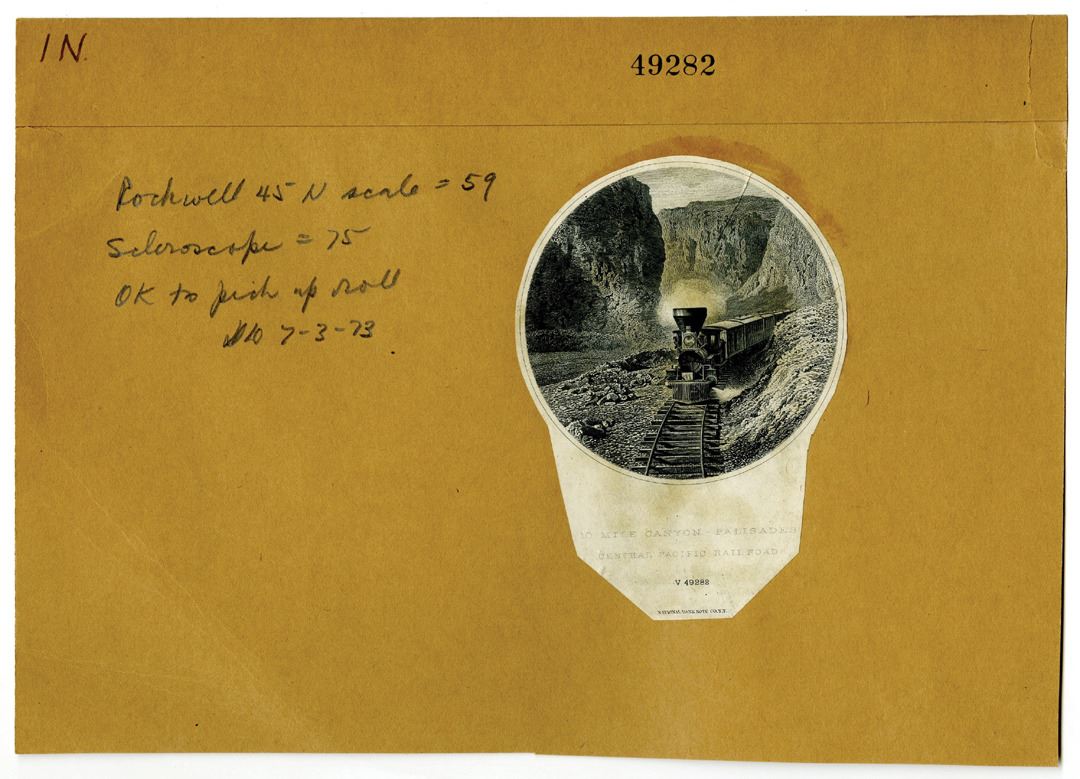 IN.
49282
Rockwell 45 N scale = 59
Scleroscope = 75
OK to pick up roll
7-3-73
10 MILE CANYON - PALISADES
CENTRAL PACIFIC RAILROAD
V 49282
NATIONAL BANK NOTE CO. N.Y.